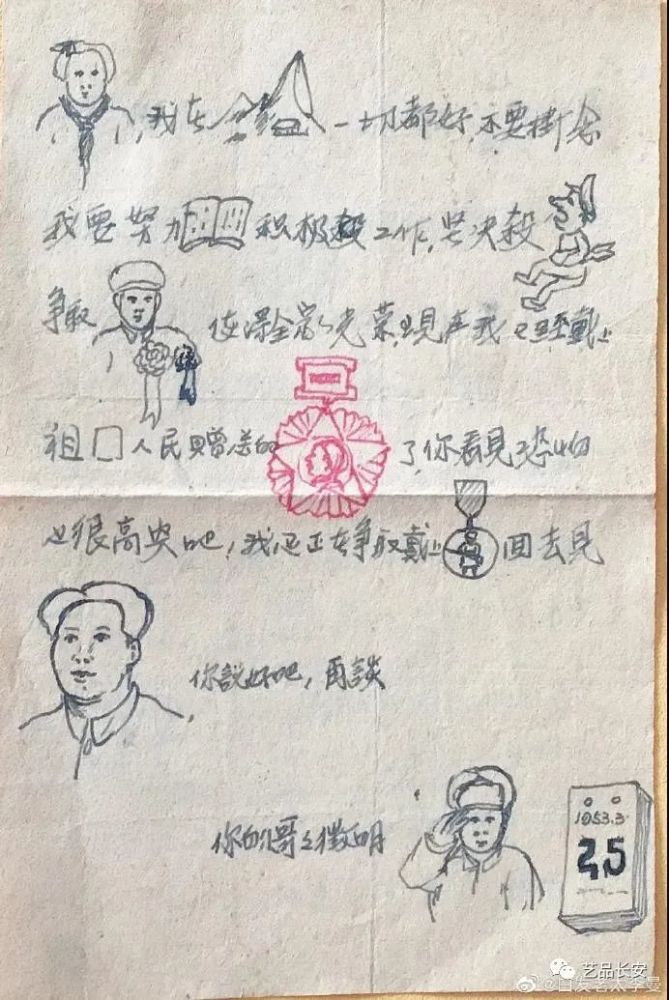 ，我在 一切都好，不要掛念
我要努力 积极殺工作，坚决殺
争取 使得全家光荣，現在我已經戴上
祖囗人民贈送的 了，你看見了恐怕
也很高兴吧，我还正在争取戴上 回去見
你説好吧，再談
你的哥々
1953.3.
25
艺品长安